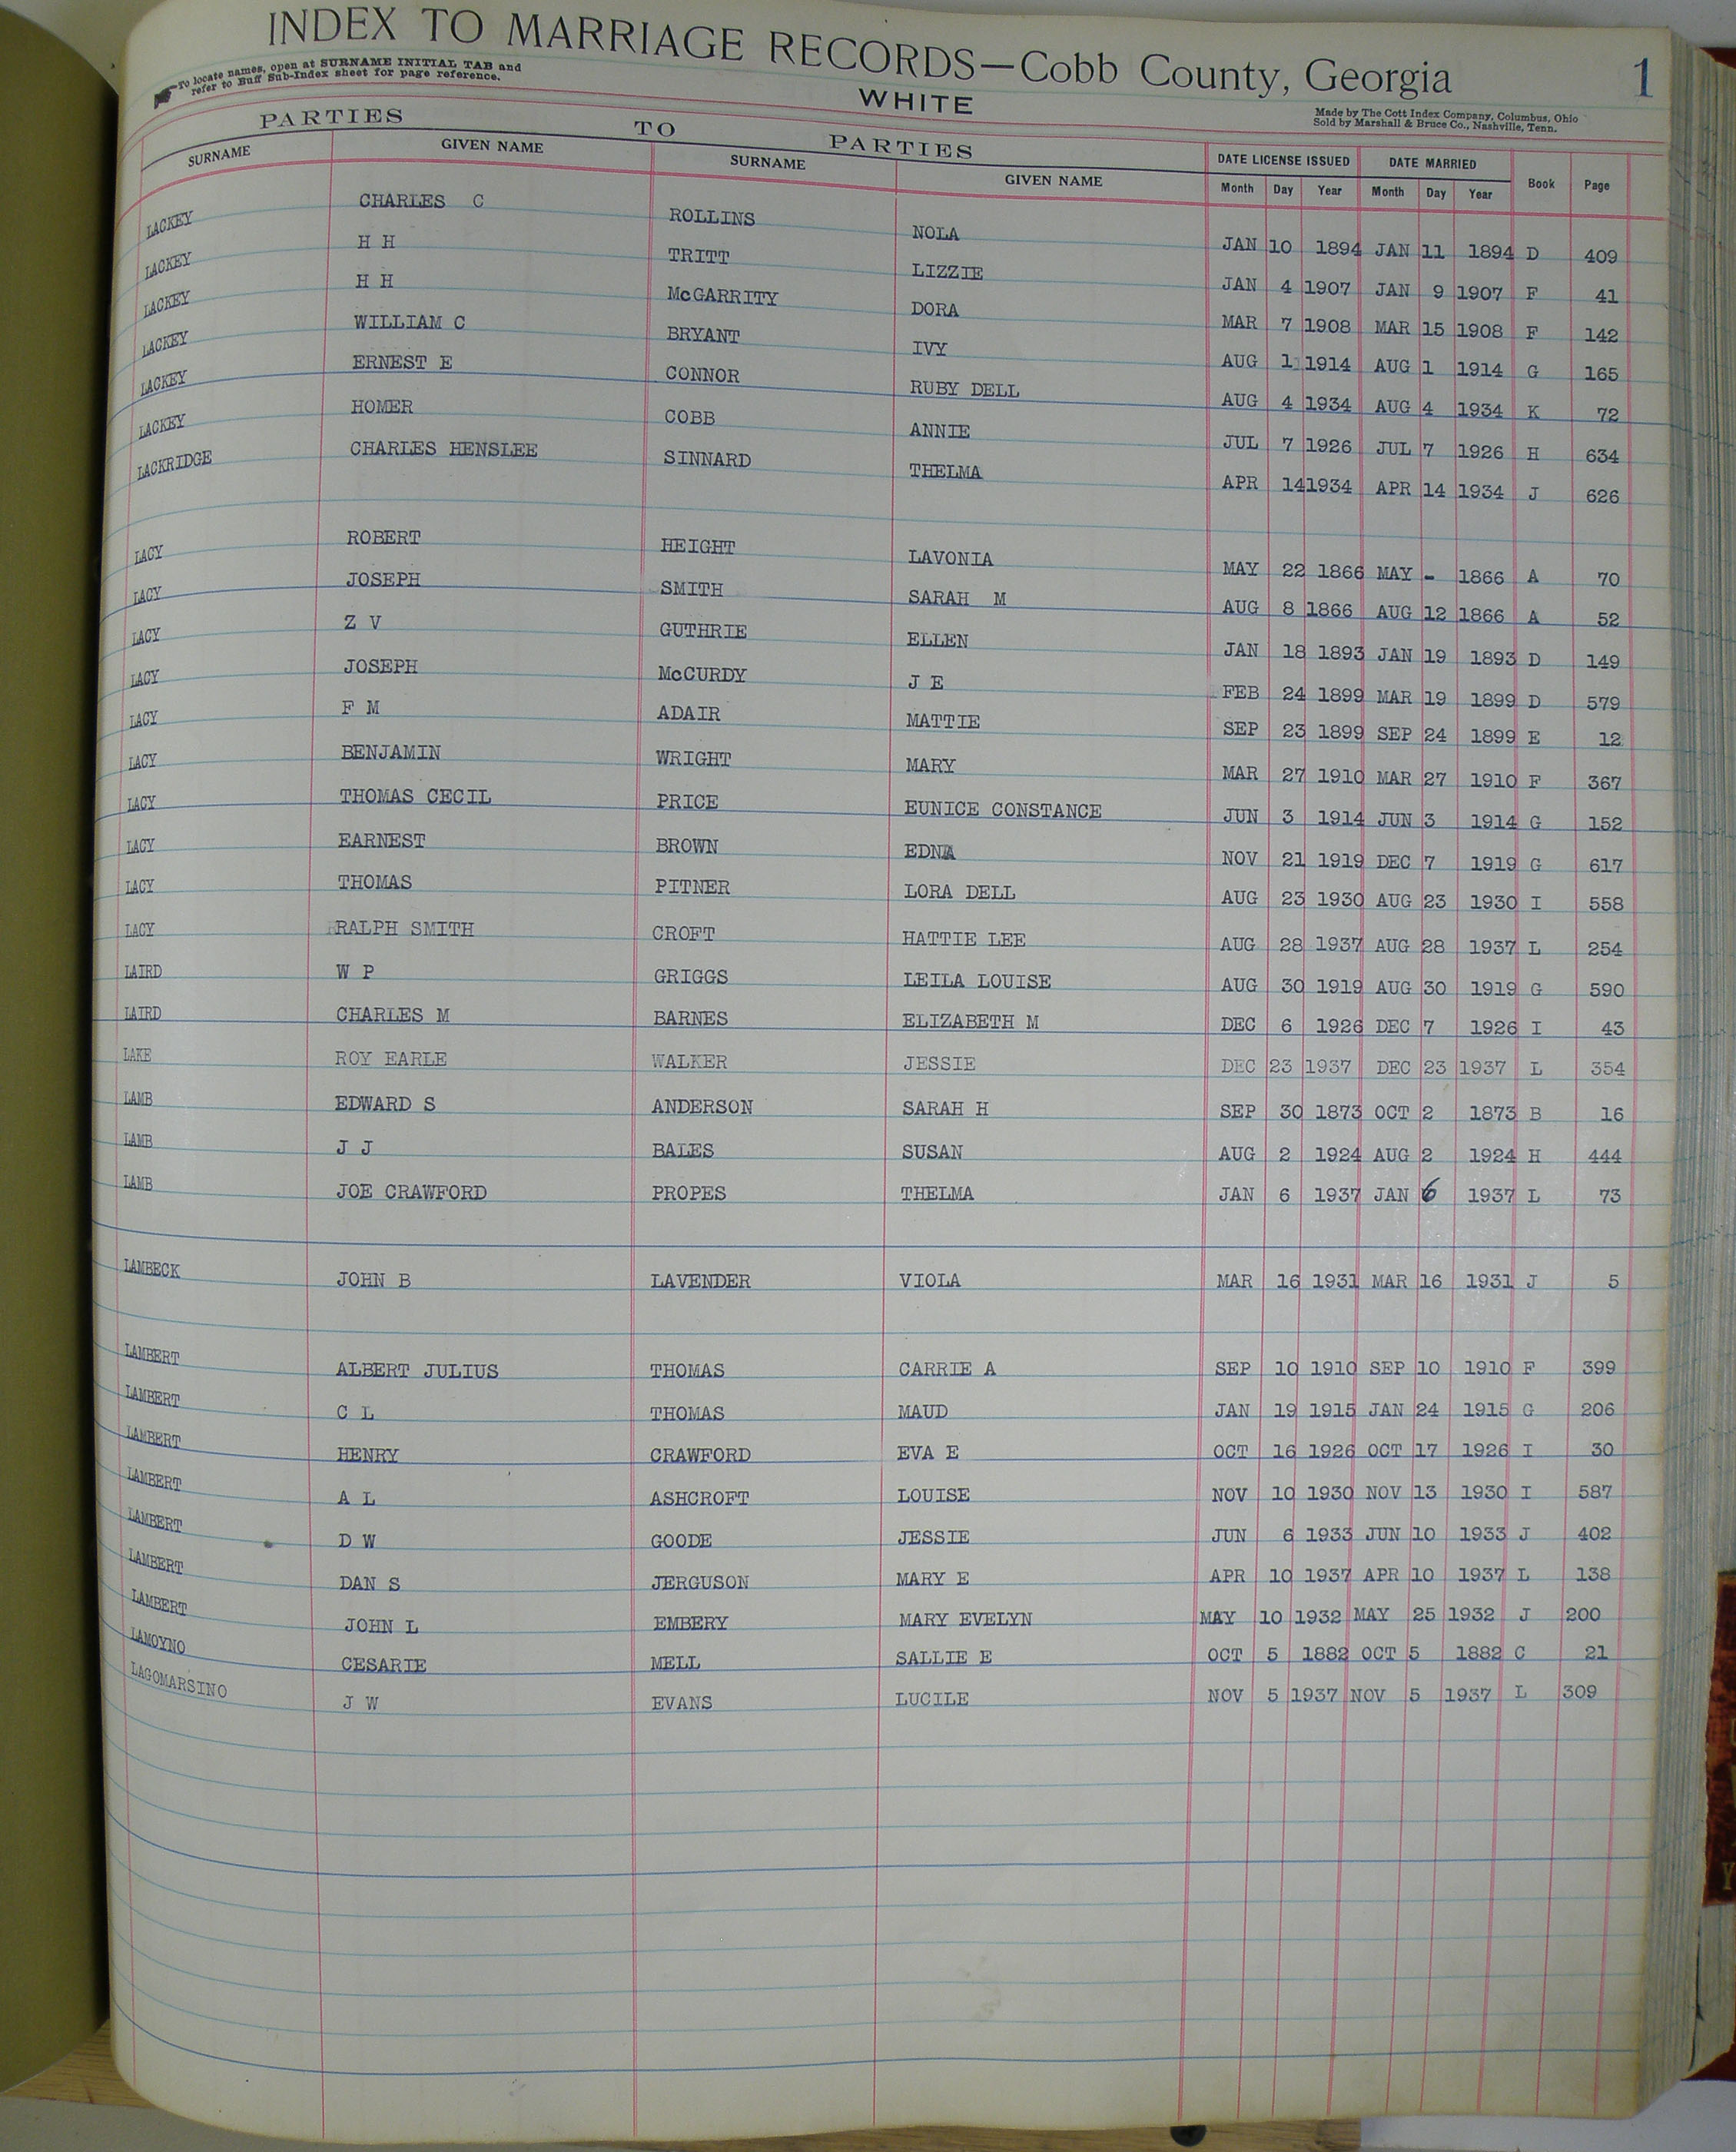 INDEX TO MARRIAGE RECORDS—Cobb County, Georgia 1
To locate names, open at SURNAME INITIAL TAB and
refer to Buff Sub-Index sheet for page reference.
WHITE
Made by The Cott Index Company, Columbus, Ohio
Sold by Marshall & Bruce Co., Nashville, Tenn.
PARTIES TO PARTIES
SURNAME GIVEN NAME SURNAME GIVEN NAME DATE LICENSE ISSUED DATE MARRIED Book Page
Month Day Year Month Day Year
LACKEY CHARLES C ROLLINS NOLA JAN 10 1894 JAN 11 1894 D 409
LACKEY H H TRITT LIZZIE JAN 4 1907 JAN 9 1907 F 41
LACKEY H H McGARRITY DORA MAR 7 1908 MAR 15 1908 F 142
LACKEY WILLIAM C BRYANT IVY AUG 1 1914 AUG 1 1914 G 165
LACKEY ERNEST E CONNOR RUBY DELL AUG 4 1934 AUG 4 1934 K 72
LACKEY HOMER COBB ANNIE JUL 7 1926 JUL 7 1926 H 634
LACKRIDGE CHARLES HENSLEE SINNARD THELMA APR 14 1934 APR 14 1934 J 626
LACY ROBERT HEIGHT LAVONIA MAY 22 1866 MAY - 1866 A 70
LACY JOSEPH SMITH SARAH M AUG 8 1866 AUG 12 1866 A 52
LACY Z V GUTHRIE ELLEN JAN 18 1893 JAN 19 1893 D 149
LACY JOSEPH McCURDY J E FEB 24 1899 MAR 19 1899 D 579
LACY F M ADAIR MATTIE SEP 23 1899 SEP 24 1899 E 12
LACY BENJAMIN WRIGHT MARY MAR 27 1910 MAR 27 1910 F 367
LACY THOMAS CECIL PRICE EUNICE CONSTANCE JUN 3 1914 JUN 3 1914 G 152
LACY EARNEST BROWN EDNA NOV 21 1919 DEC 7 1919 G 617
LACY THOMAS PITNER LORA DELL AUG 23 1930 AUG 23 1930 I 558
LACY RALPH SMITH CROFT HATTIE LEE AUG 28 1937 AUG 28 1937 L 254
LAIRD W P GRIGGS LEILA LOUISE AUG 30 1919 AUG 30 1919 G 590
LAIRD CHARLES M BARNES ELIZABETH M DEC 6 1926 DEC 7 1926 I 43
LAKE ROY EARLE WALKER JESSIE DEC 23 1937 DEC 23 1937 L 354
LAMB EDWARD S ANDERSON SARAH H SEP 30 1873 OCT 2 1873 B 16
LAMB J J BALES SUSAN AUG 2 1924 AUG 2 1924 H 444
LAMB JOE CRAWFORD PROPES THELMA JAN 6 1937 JAN 6 1937 L 73
LAMBECK JOHN B LAVENDER VIOLA MAR 16 1931 MAR 16 1931 J 5
LAMBERT ALBERT JULIUS THOMAS CARRIE A SEP 10 1910 SEP 10 1910 F 399
LAMBERT C L THOMAS MAUD JAN 19 1915 JAN 24 1915 G 206
LAMBERT HENRY CRAWFORD EVA E OCT 16 1926 OCT 17 1926 I 30
LAMBERT A L ASHCROFT LOUISE NOV 10 1930 NOV 13 1930 I 587
LAMBERT D W GOODE JESSIE JUN 6 1933 JUN 10 1933 J 402
LAMBERT DAN S JERGUSON MARY E APR 10 1937 APR 10 1937 L 138
LAMBERT JOHN L EMBERY MARY EVELYN MAY 10 1932 MAY 25 1932 J 200
LAMOYNO CESARIE MELL SALLIE E OCT 5 1882 OCT 5 1882 C 21
LAGOMARSINO J W EVANS LUCILE NOV 5 1937 NOV 5 1937 L 309